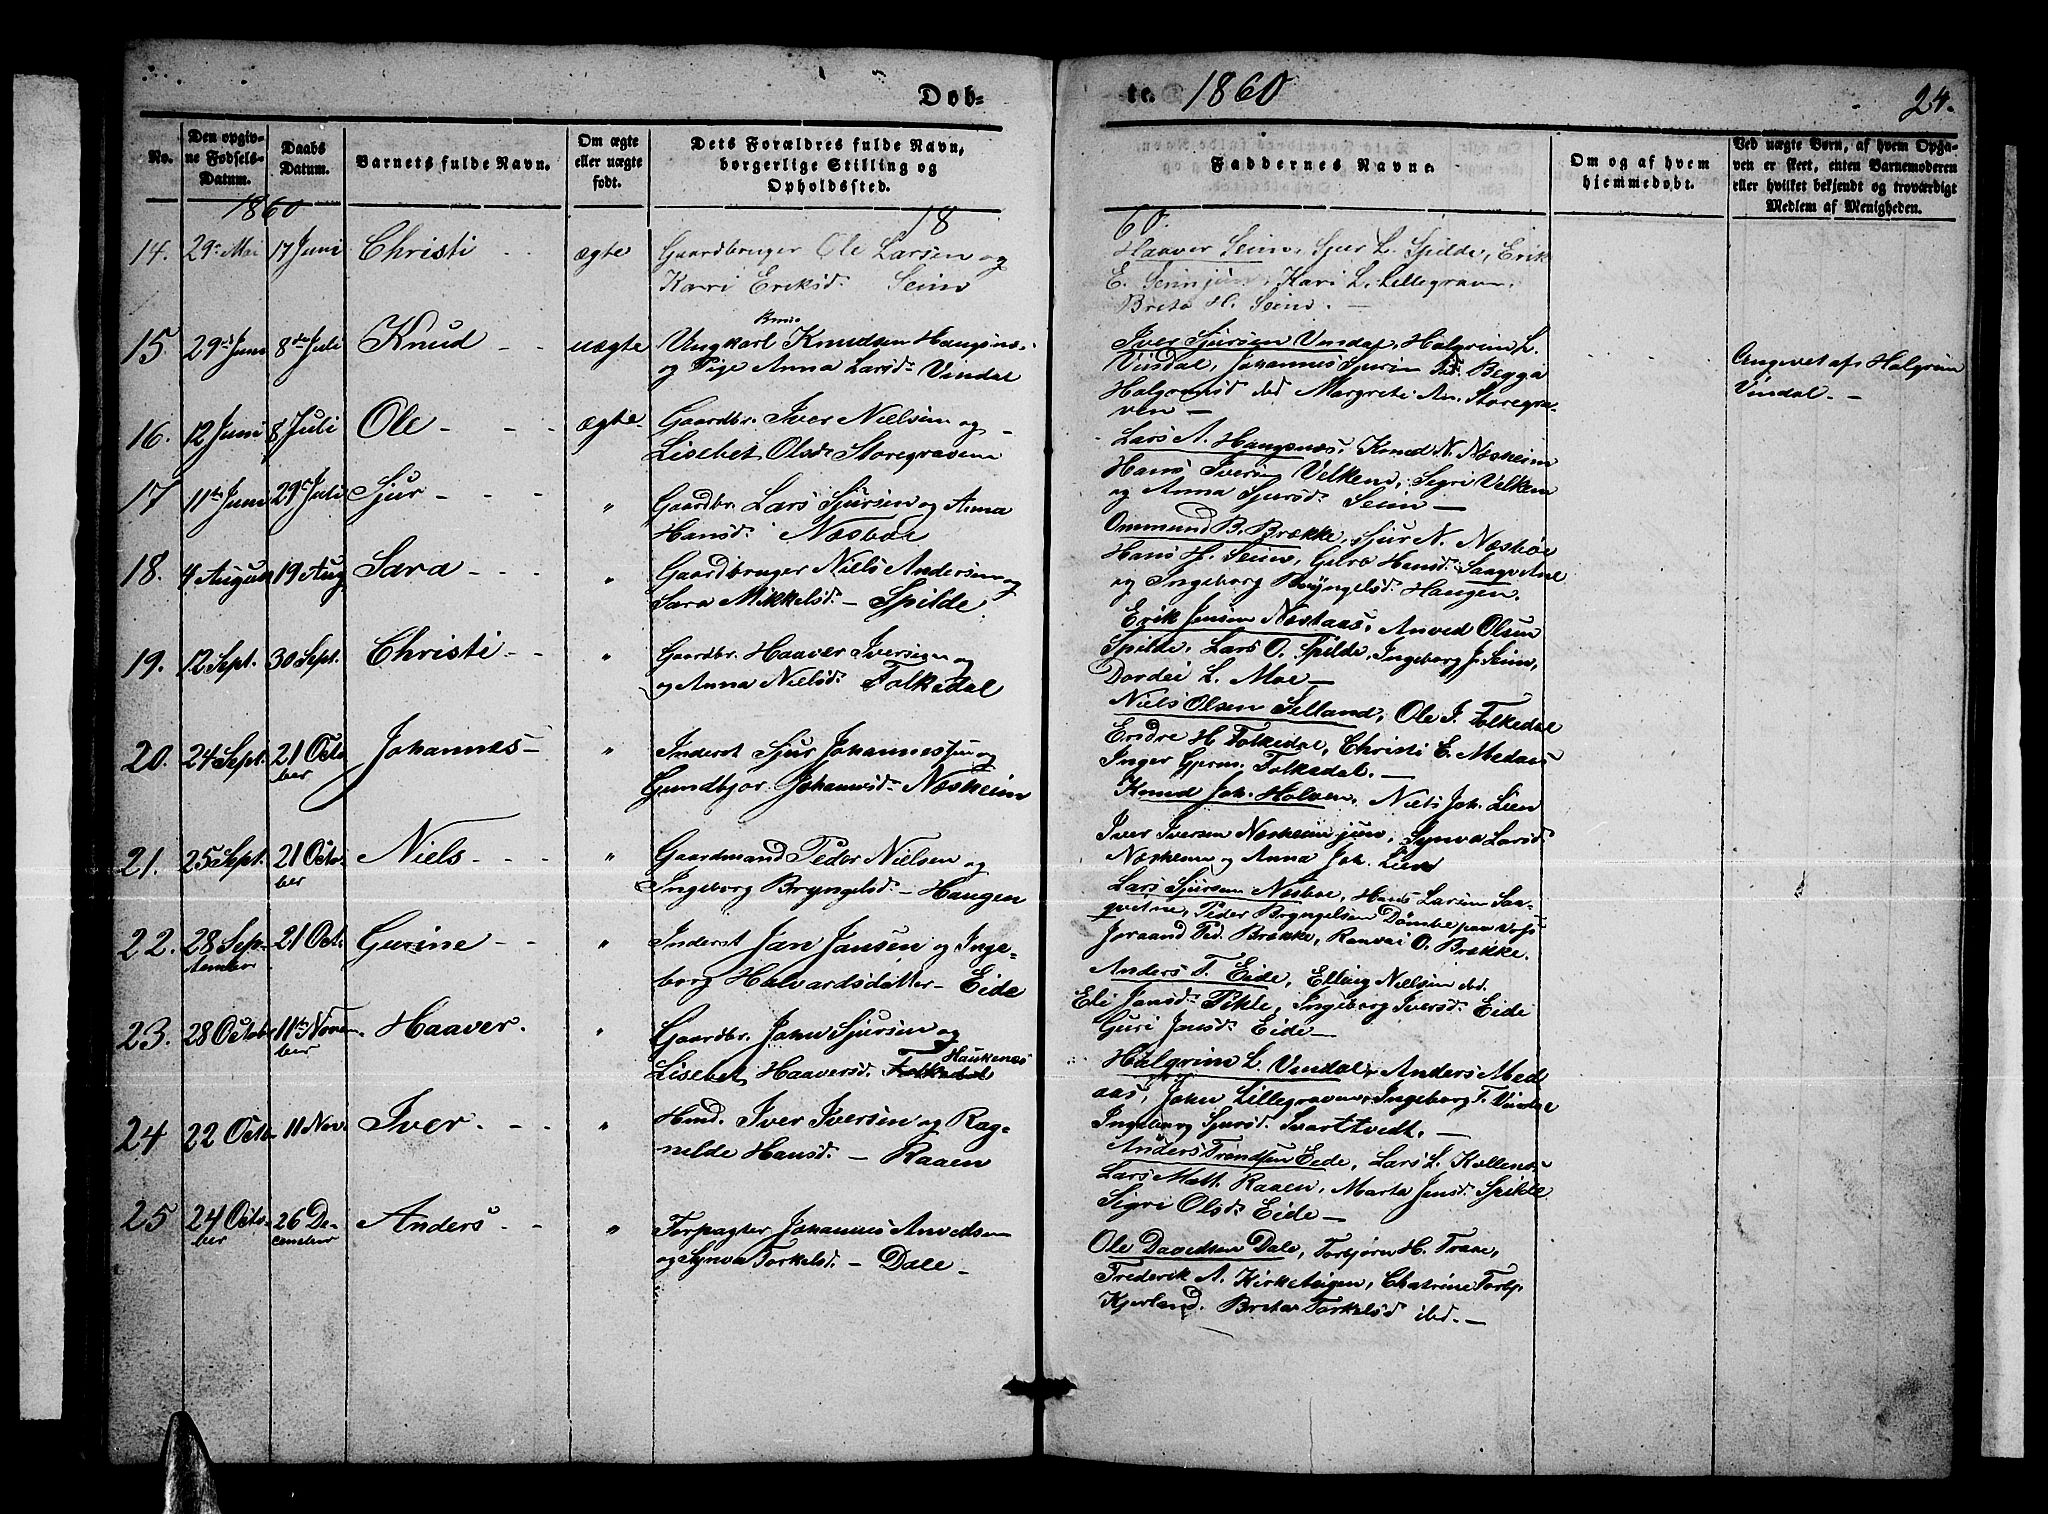 Døb-
te. 1860
24.
No.
Den opgiv-
ne Fødsels-
Datum.
Daabs
Datum.
Barnets fulde Navn.
Om ægte
eller uægte
født.
Dets Forældres fulde Navn,
borgerlige Stilling og
Opholdssted.
Faddernes Navne.
Om og af hvem
hjemmedøbt.
Ved uægte Børn, af hvem Opga-
ven er skeet, enten Barnemoderen
eller hvilket bekjendt og troværdigt
Medlem af Menigheden.
1860
18
60.
14. 29 Mai 17 Juni Christi - - ægte Gaardbruger Ole Larsen og
Kari Eriksd. Seim
Haaver Seim, Sjur L. Spilde, Erik
E. Seim jun, Kari L. Lillegraven,
Brita H. Seim. -
15 29 Juni 8de Juli Knud - - uægte Ungkarl Knudsen Hangsnæs
og Pige Anna Larsd. Vindal
Iver Sjursen Vindal, Halgrim L.
Vindal, Johannes Begga
Halgrimsd ibd Margrete An. Storegra-
ven -
Angivet af Halgrim
Vindal. -
16. 12 Juni 8 Juli Ole - - - ægte - Gaardbr. Iver Nielsen og -
Lisebet Olsd. Storegraven
Lars A. Hangsnæs, Knud N. Næsheim
Hans Iversen Velken, Sigri Velken
og Anna Sjursd. Seim -
17 11te Juni 29 Juli Sjur - - - " Gaardbr. Lars Sjursen og Anna
Hansd. Næsbøe
Ommund B. Brække, Sjur N. Næsbøe
Hans H. Seim, Hansd.
og Ingeborg Bryngelsd. Haugen.
18. 4 August 19 Aug Sara - - - " Gaardbruger Niels Andersen og
Sara Mikkelsd. - Spilde
Erik Jensen Næstaas, Anved Olsen
Spilde, Lars O. Spilde, Ingeborg J. Seim,
Dordei L. Moe -
19. 12 Sept. 30 Sept. Christi - - " Gaardbr. Haaver Iversen og
og Anna Nielsd. Folkedal
Niels Olsen Selland, Ole J. Folkedal
Endre H. Folkedal, Christi E. Medaas
Inger Folkedal. -
20. 24 Sept. 21 Octo-
ber Johannes - " Inderst Sjur Johannessen og
Gundbjor Johannesd. Næsheim
Knud Joh. Holven, Niels Joh. Lien
Iver Iversen Næsheim jun, Synva Larsd.
Næsheim og Anna Joh. Lien
21. 25 Sept. 21 Octo-
ber Niels - - - " Gaardmand Peder Nielsen og
Ingeborg Bryngelsd. - Haugen
Lars Sjursen Næsbøe, Hans Larsen Saa-
qvitne, Peder Bryngelsen Dømbe paa Vos
Joraand Ped. Brække, Ranvei O. Brække.
22. 28 Sep-
tember 21 Oct. Gurine - - " Inderst Jan Jansen og Inge-
borg Halvardsdatter - Eide
Anders T. Eide, Elling Nielsen ibd.
Eli Jansd. Ingeborg Iversd. Eide
Guri Jansd. Eide -
23. 28 Octob 11te Novem-
ber Haaver. " Gaardbr. John Sjursen og
Lisebet Haaversd. Folkedal Haukenæs
Halgrim L. Vindal, Anders Med
aas, John Lillegraven, Ingeborg T. Vindal
Ingeborg Sjursd. Svarttvedt. -
24 22 Octb. 11 Nov. Iver. - - " Hmd. Iver Iversen og Rag-
nilde Hansd. - Raaen
Anders Trondsen Eide, Lars L. Kollenæs
Lars Matt. Raaen, Marta Jensd. Spilde
Sigri Olsd. Eide -
25 24 Octo-
ber 26 De-
cember Anders - - " Forpagter Johannes Anvedsen
og Synva Torkelsd. - Dale -
Ole Davidsen Dale, Torbjørn H. Traae,
Frederik A. Kirkesteigen, Chatrine Torbj.
Kjerland. Brita Torkelsd ibd. -